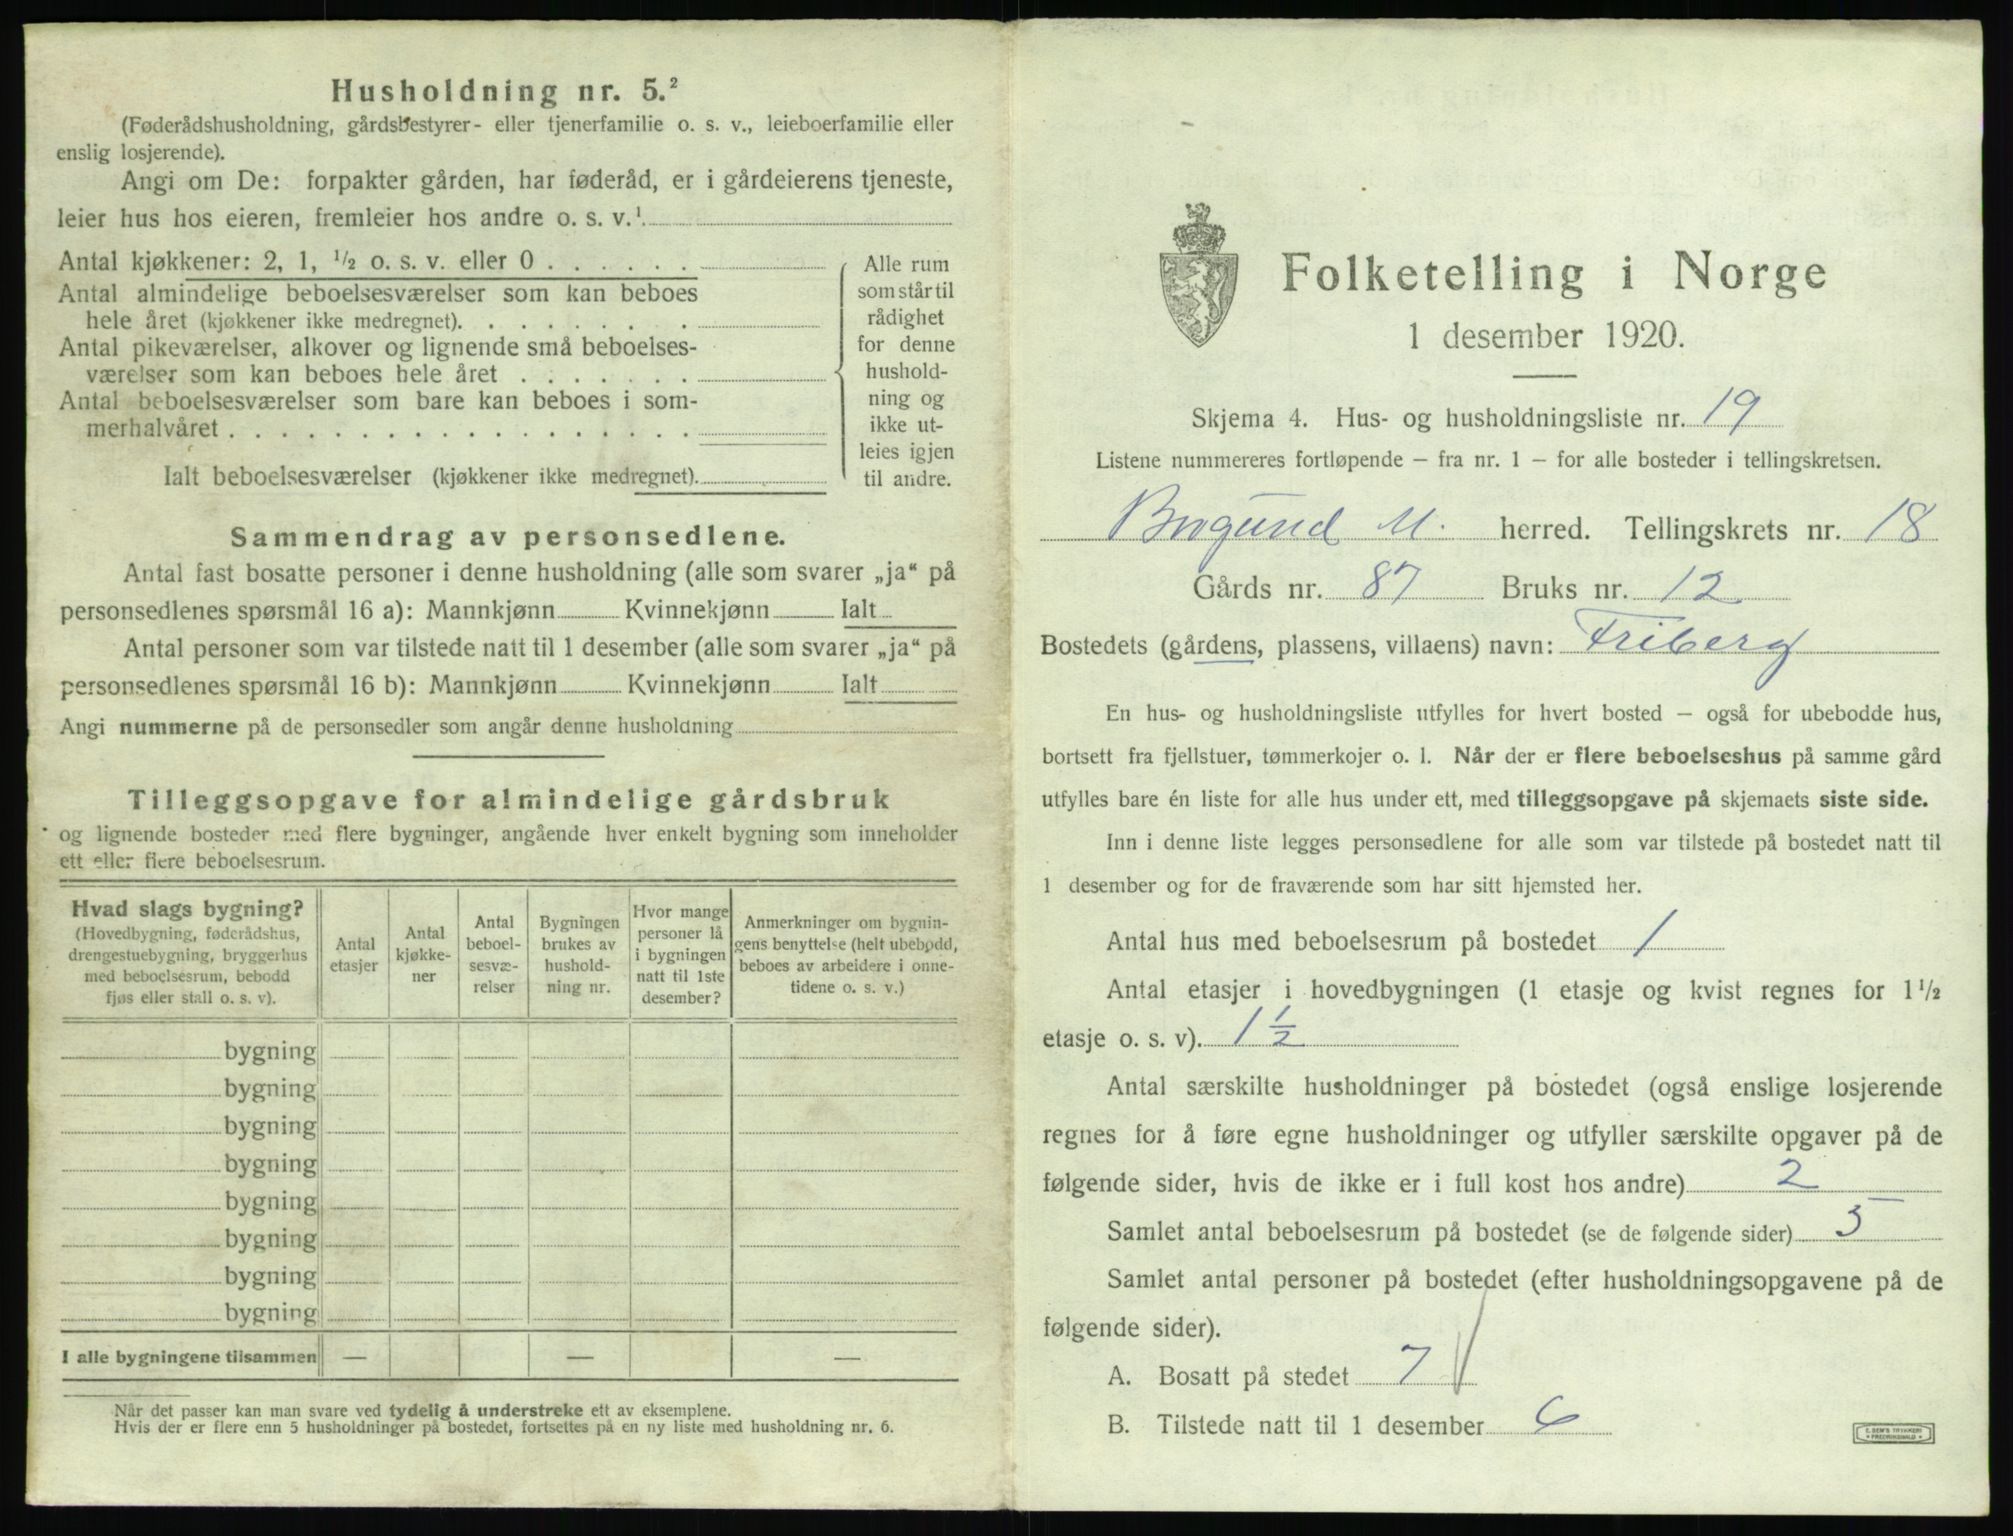 Husholdning nr. 5.²
(Føderådshusholdning, gårdsbestyrer- eller tjenerfamilie o. s. v., leieboerfamilie eller
enslig losjerende).
Angi om De: forpakter gården, har føderåd, er i gårdeierens tjeneste,
leier hus hos eieren, fremleier hos andre o. s. v.¹
Antal kjøkkener: 2, 1, ½ o. s. v. eller 0 . . . . . .
Antal almindelige beboelsesværelser som kan beboes
hele året (kjøkkener ikke medregnet). . . . . . . .
Antal pikeværelser, alkover og lignende små beboelses-
værelser som kan beboes hele året . . . . . . .
Antal beboelsesværelser som bare kan beboes i som-
merhalvåret . . . . . . . . . . . . . . . . . .
Ialt beboelsesværelser (kjøkkener ikke medregnet).
Alle rum
som står til
rådighet
for denne
hushold-
ning og
ikke ut-
leies igjen
til andre.
Sammendrag av personsedlene.
Antal fast bosatte personer i denne husholdning (alle som svarer „ja“ på
personsedlenes spørsmål 16 a): Mannkjønn Kvinnekjønn Ialt
Antal personer som var tilstede natt til 1 desember (alle som svarer „ja“ på
personsedlenes spørsmål 16 b): Mannkjønn Kvinnekjønn Ialt
Angi nummerne på de personsedler som angår denne husholdning
Tilleggsopgave for almindelige gårdsbruk
og lignende bosteder med flere bygninger, angående hver enkelt bygning som inneholder
ett eller flere beboelsesrum.
Hvad slags bygning?
(Hovedbygning, føderådshus,
drengestuebygning, bryggerhus
med beboelsesrum, bebodd
fjøs eller stall o. s. v).
Antal
etasjer
Antal
kjøkke-
ner
Antal
beboel-
sesvæ-
relser
Bygningen
brukes av
hushold-
ning nr.
Hvor mange
personer lå
i bygningen
natt til 1ste
desember?
Anmerkninger om bygnin-
gens benyttelse (helt ubebodd,
beboes av arbeidere i onne-
tidene o. s. v.)
bygning
bygning
bygning
bygning
bygning
bygning
bygning
bygning
I alle bygningene tilsammen — — —
Når det passer kan man svare ved tydelig å understreke ett av eksemplene.
Hvis der er flere enn 5 husholdninger på bostedet, fortsettes på en ny liste med husholdning nr. 6.
Folketelling i Norge
1 desember 1920.
Skjema 4. Hus- og husholdningsliste nr. 19
Listene nummereres fortløpende – fra nr. 1 – for alle bosteder i tellingskretsen.
Borgund M. herred. Tellingskrets nr. 18
Gårds nr. 87 Bruks nr. 12
Bostedets (gårdens, plassens, villaens) navn: Friberg
En hus- og husholdningsliste utfylles for hvert bosted – også for ubebodde hus,
bortsett fra fjellstuer, tømmerkojer o. l. Når der er flere beboelseshus på samme gård
utfylles bare én liste for alle hus under ett, med tilleggsopgave på skjemaets siste side.
Inn i denne liste legges personsedlene for alle som var tilstede på bostedet natt til
1 desember og for de fraværende som har sitt hjemsted her.
Antal hus med beboelsesrum på bostedet 1
Antal etasjer i hovedbygningen (1 etasje og kvist regnes for 1½
etasje o. s. v). 1½
Antal særskilte husholdninger på bostedet (også enslige losjerende
regnes for å føre egne husholdninger og utfyller særskilte opgaver på de
følgende sider, hvis de ikke er i full kost hos andre) 2
Samlet antal beboelsesrum på bostedet (se de følgende sider) 5
Samlet antal personer på bostedet (efter husholdningsopgavene på de
følgende sider).
A. Bosatt på stedet 7
B. Tilstede natt til 1 desember 6
E. SEM'S TRYKKERI
FREDRIKSHALD